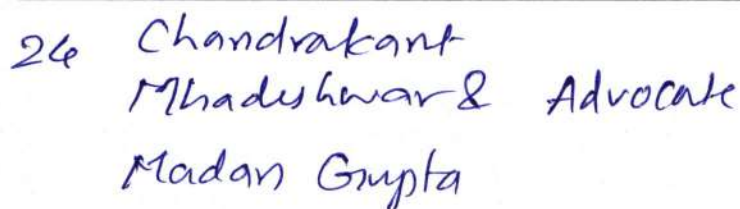 24 Chandrakant
Mhadeshwar & Advocate
Madan Gupta